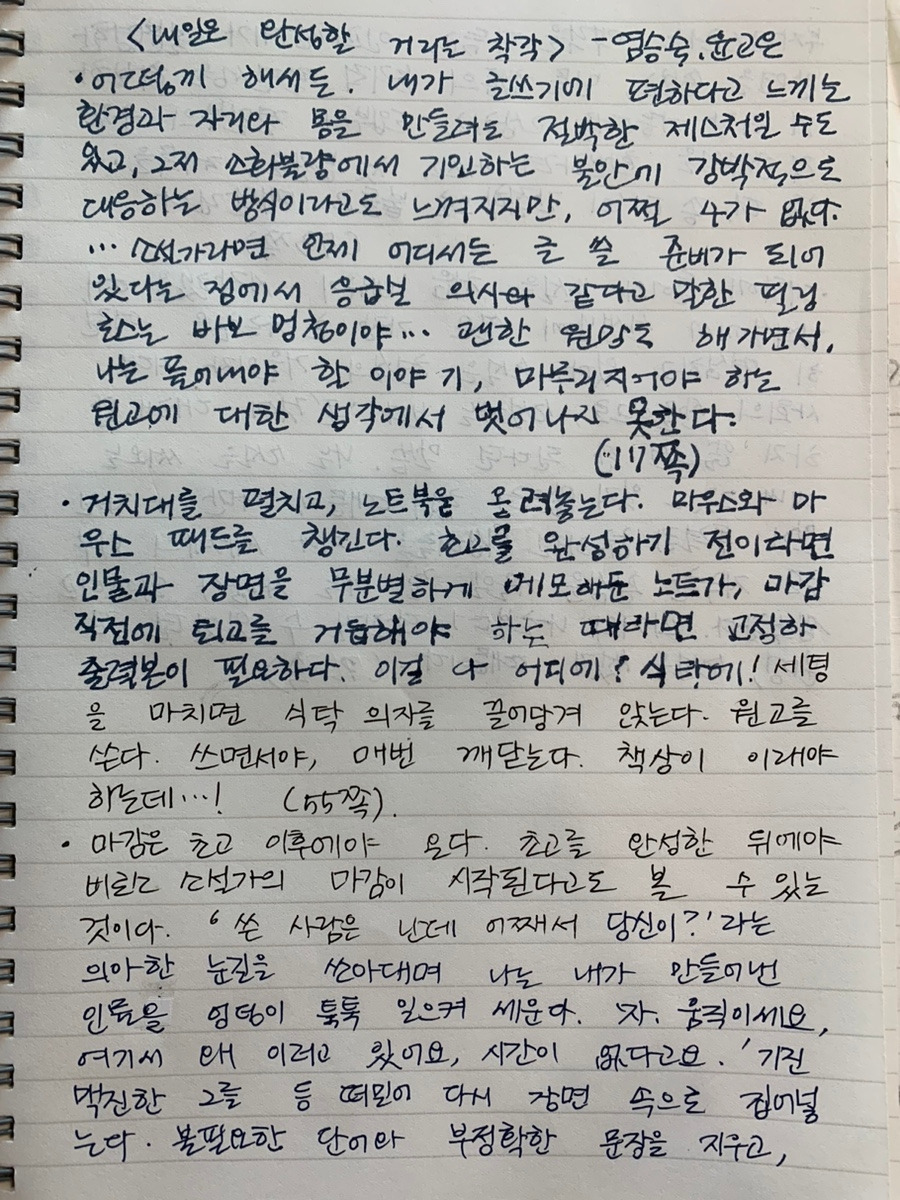 <내일은 완성할 거라는 착각> - 염승숙, 윤고은
• 어떻게 해서든. 내가 글쓰기에 편하다고 느끼는
환경과 자리와 몸을 만들려는 절박한 제스처일 수도
있고, 그저 소화불량에서 기인하는 불안에 강박적으로
대응하는 방식이라고도 느껴지지만, 어쩔 수가 없다.
… 소설가라면 언제 어디서든 글 쓸 준비가 되어
있다는 점에서 응급실 의사와 같다고 말한 필립
로스는 바보 멍청이야… 괜한 원망도 해 가면서,
나는 풀어내야 할 이야기, 마무리지어야 하는
원고에 대한 생각에서 벗어나지 못한다.
(117쪽)
• 거치대를 펼치고, 노트북을 올려놓는다. 마우스와 마
우스 패드를 챙긴다. 초고를 완성하기 전이라면
인물과 장면을 무분별하게 메모해둔 노트가, 마감
직전에 퇴고를 거듭해야 하는 때라면 교정하
출력본이 필요하다. 이걸 다 어디에? 식탁에! 세팅
을 마치면 식탁 의자를 끌어당겨 앉는다. 원고를
쓴다. 쓰면서야, 매번 깨닫는다. 책상이 이래야
하는데…! (55쪽).
• 마감은 초고 이후에야 온다. 초고를 완성한 뒤에야
비로소 소설가의 마감이 시작된다고도 볼 수 있는
것이다. '쓴 사람은 난데 어째서 당신이?' 라는
의아한 눈길을 쏘아대며 나는 내가 만들어낸
인물을 엉덩이 툭툭 일으켜 세운다. '자, 움직이세요,
여기서 왜 이러고 있어요, 시간이 없다고요.' 기진
맥진한 그를 등 떠밀어 다시 장면 속으로 집어넣
는다. 불필요한 단어와 부정확한 문장을 지우고,